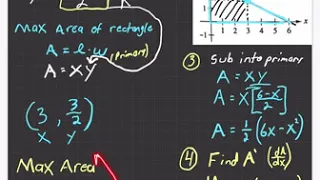 Max Area of rectangle
A = l·w (primary)
A = XY
(3, 3/2)
X Y
Max Area
1
0 1 2 3 4 5 6
③ Sub into primary
A = XY
A = X[6-x/2]
A = 1/2(6x-x²)
④ Find A' (dA/dx)